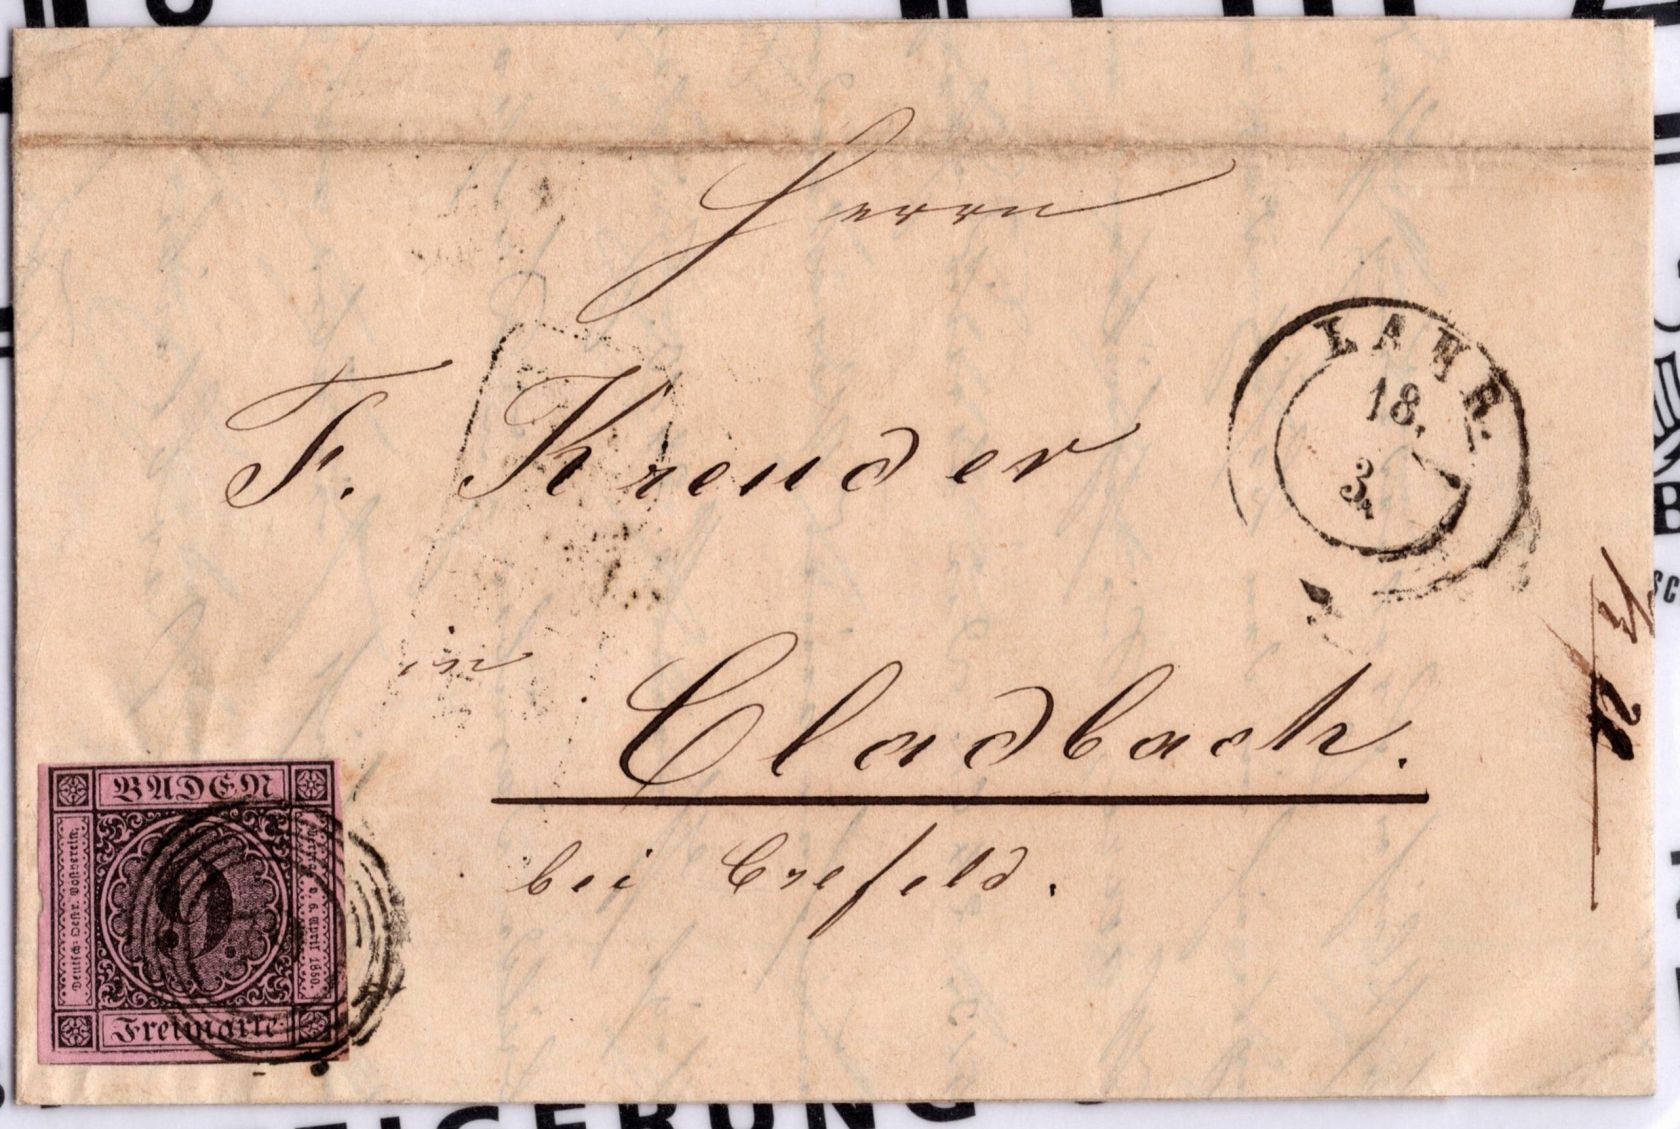 Herrn
LAHR.
18.
3.
F. Kreuder
in
Cladbach.
bei Crefeld.
BADEN
Deutsch-Oestr. Postverein.
9
Vertrag v. 6. April 1850.
Freimarke